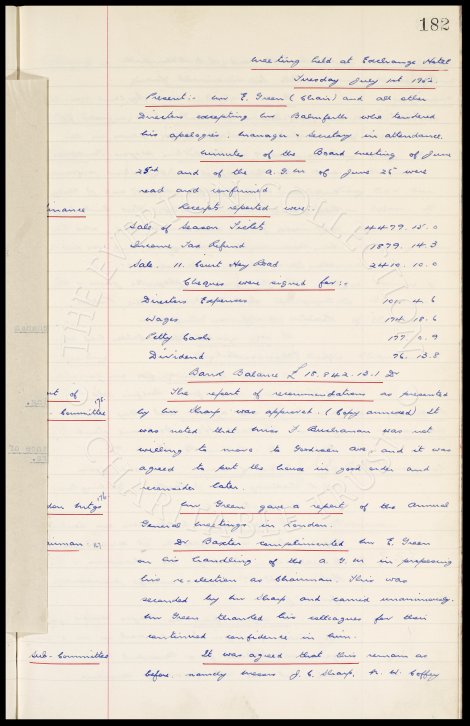 182
Meeting held at Exchange Hotel
Tuesday July 1st 1952
Present:- Mr E. Green (Chair) and all other
Directors excepting Mr Balmforth who tendered
his apologies. Manager & Secretary in attendance.
Minutes of the Board meeting of June
23rd and of the A.G.M of June 25 were
read and confirmed
Receipts reported were:-
Sale of Season Tickets 4479. 15. 0
Income Tax Refund 1879. 14. 3
Sale. 11. Court Hey Road 2410. 10. 0
Cheques were signed for:-
Directors Expenses 4. 6
Wages 174. 18. 6
Petty Cash 177. 0. 9
Dividend 76. 13. 8
Bank Balance £ 18.842.13.1 Dr
The report of recommendations as presented
by Mr Sharp was approved. (Copy annexed) It
was noted that Miss F Buchanan was not
willing to move to Goodison Ave, and it was
agreed to put the house in good order and
reconsider later.
Mr Green gave a report of the Annual
General Meetings in London.
Dr Baxter complimented Mr E. Green
on his handling of the A.G.M in proposing
his re-election as Chairman. This was
seconded by Mr Sharp and carried unanimously.
Mr Green thanked his colleagues for their
continued confidence in him.
Sub-Committee
It was agreed that this remain as
before. namely Messrs. J. C. Sharp, N. W. Coffey
nance
Committee
THE EVERTON COLLECTION
CHARITABLE TRUST